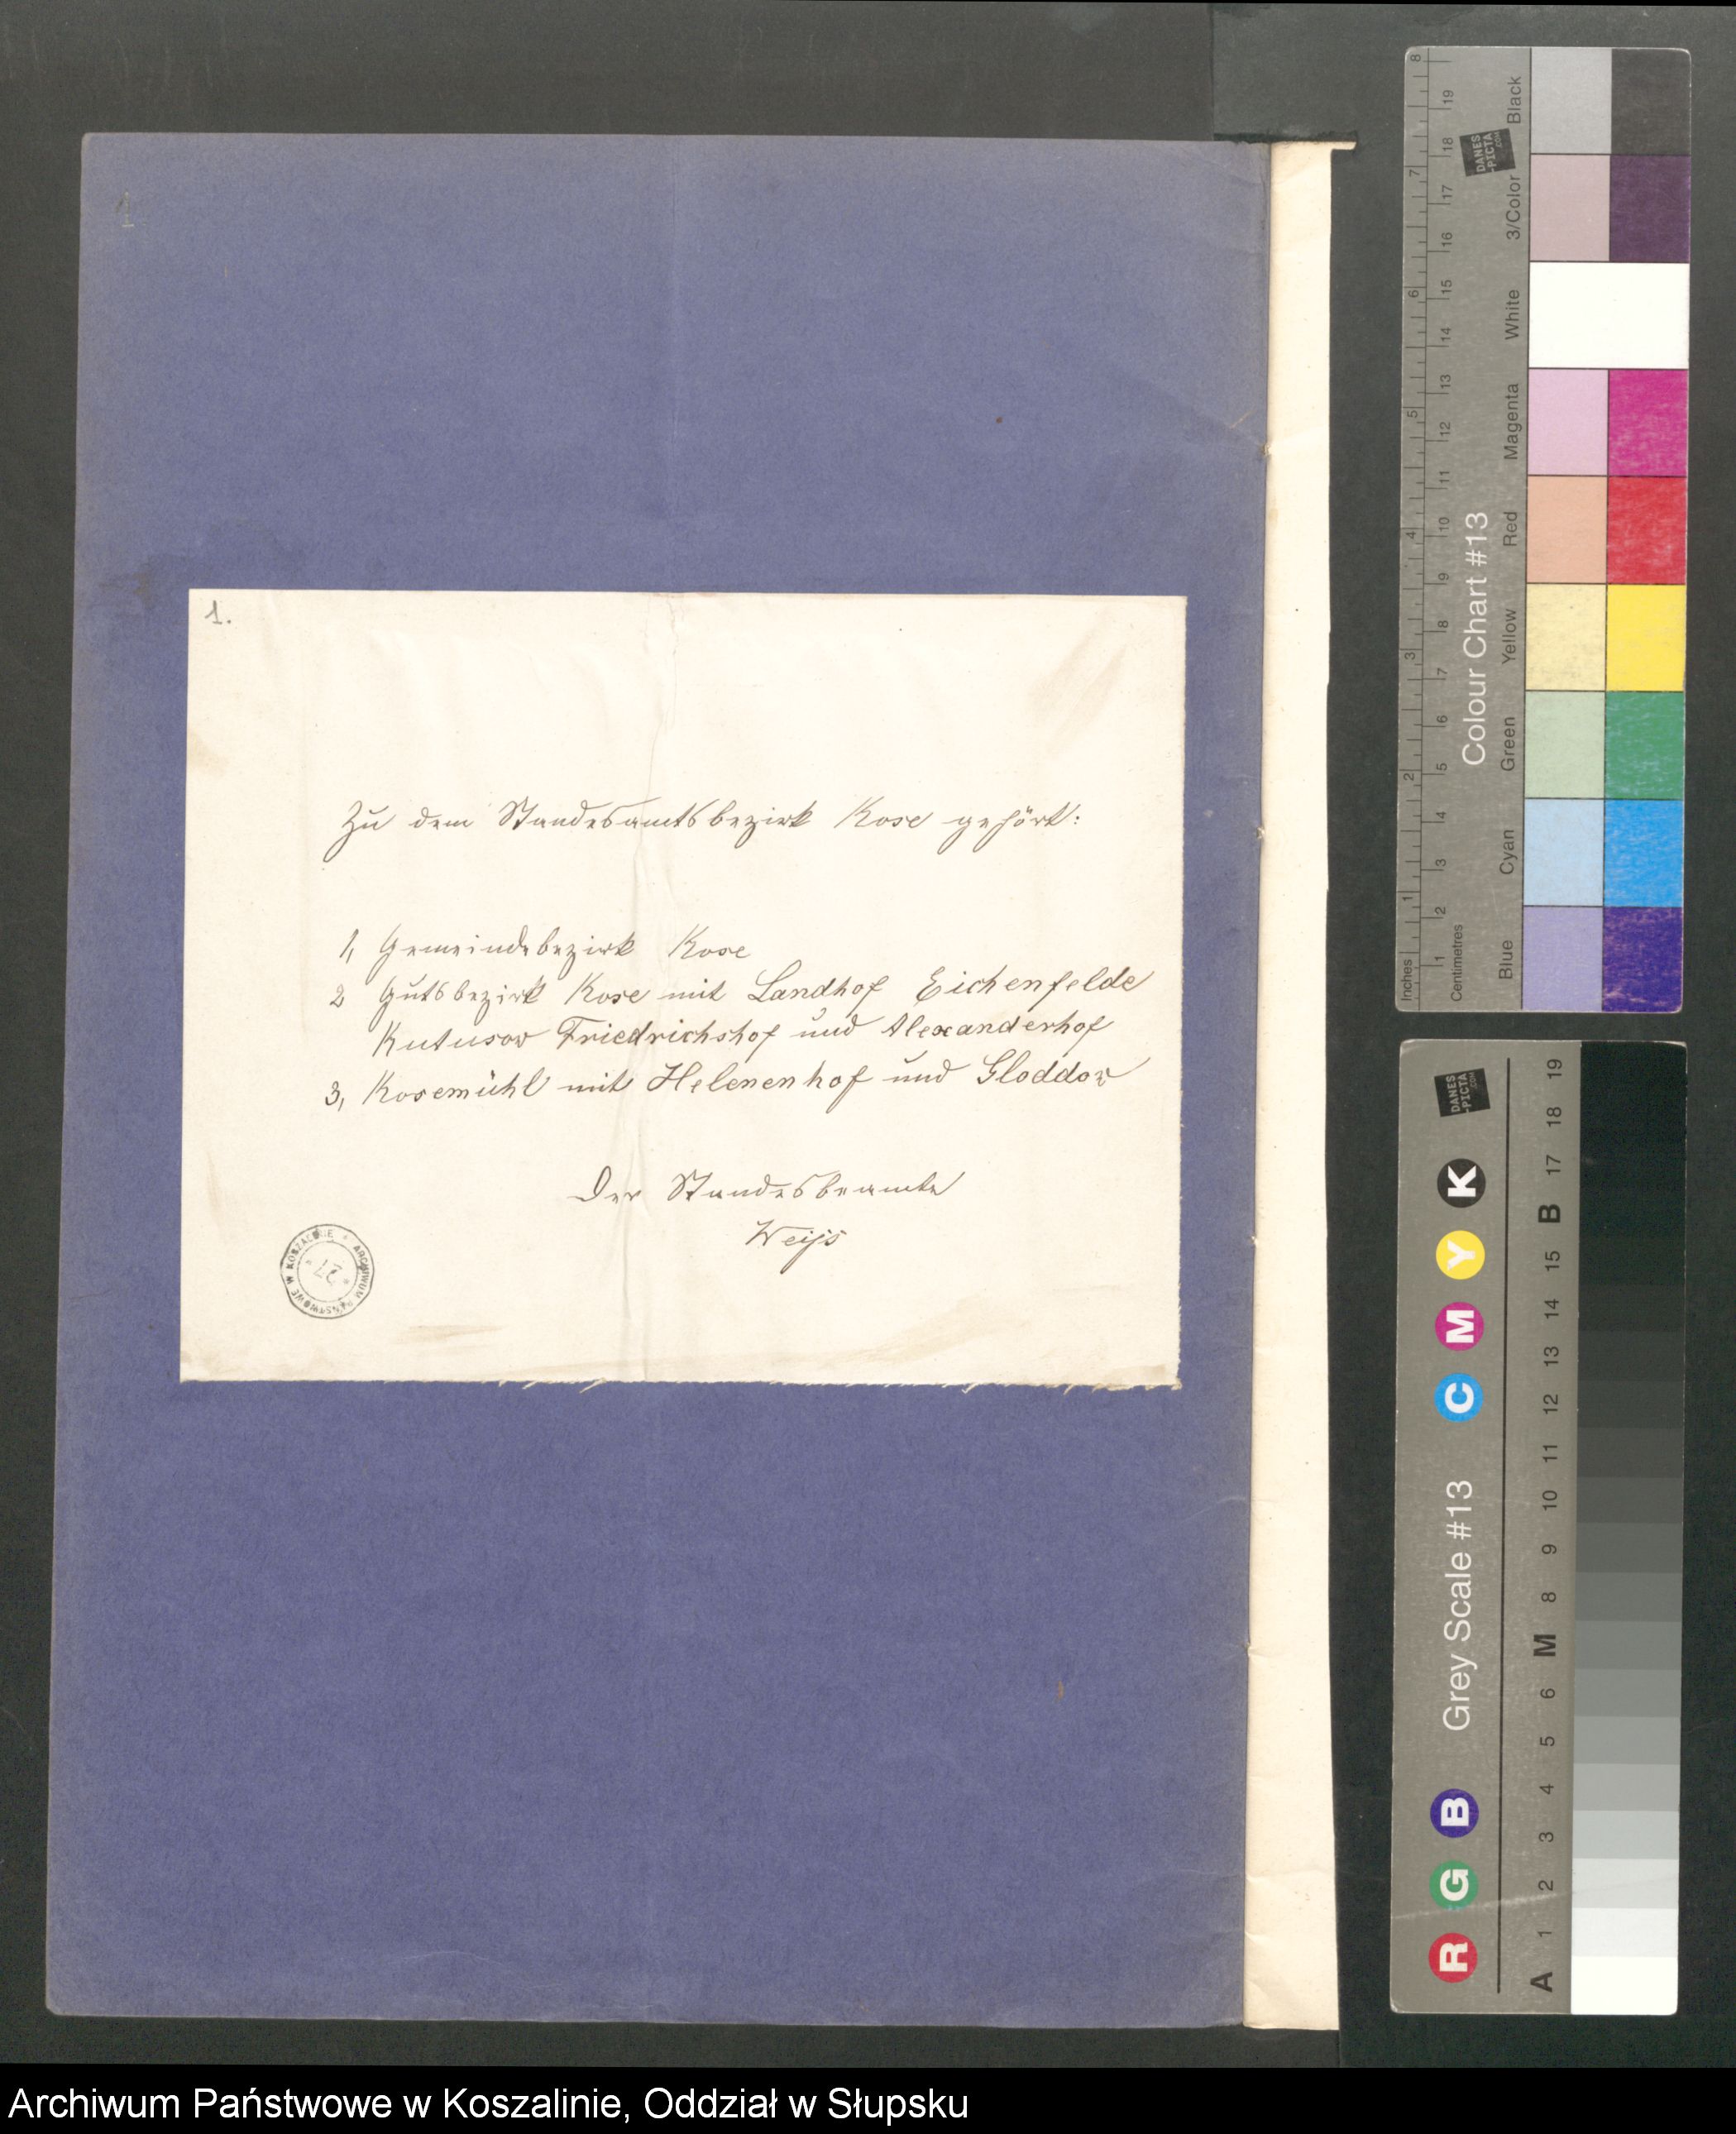 1.
Zu dem Standesamtsbezirk Kose gehört:
1, Gemeindebezirk Kose
2 Gutsbezirk Kose mit Landhof Eichenfelde
Kutusow Friedrichshof und Alexanderhof
3, Kosemühl mit Helenenhof und Gloddow
Der Standesbeamte
ARCHIWUM PAŃSTWOWE W KOSZALINIE
Inches 1 2 3 4 5 6 7 8
Centimetres 1 2 3 4 5 6 7 8 9 10 11 12 13 14 15 16 17 18 19
Colour Chart #13
DANES-PICTA.COM
Blue Cyan Green Yellow Red Magenta White 3/Color Black
R G B Grey Scale #13 C M Y K
DANES-PICTA.COM
A 1 2 3 4 5 6 M 8 9 10 11 12 13 14 15 B 17 18 19
Archiwum Państwowe w Koszalinie, Oddział w Słupsku